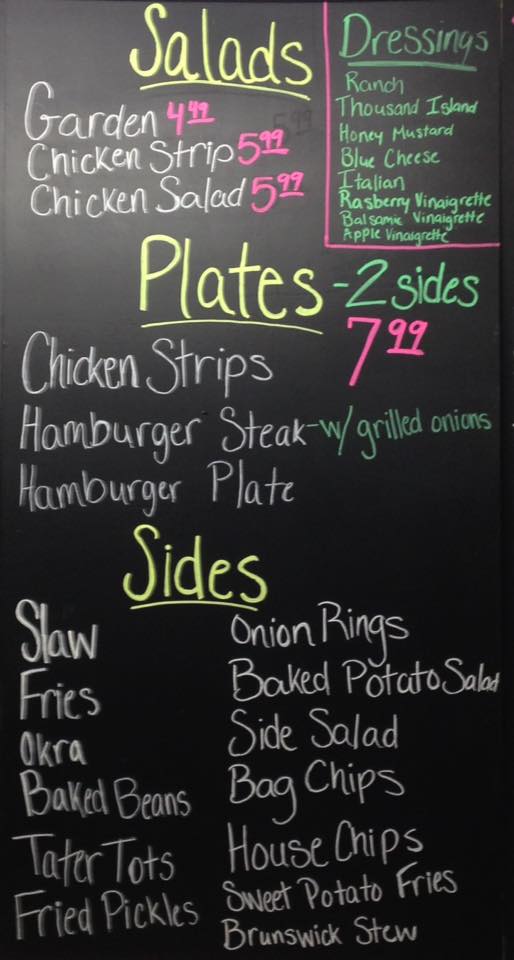 Salads
Garden 4.49
Chicken Strip 5.99
Chicken Salad 5.99
Dressings
Ranch
Thousand Island
Honey Mustard
Blue Cheese
Italian
Rasberry Vinaigrette
Balsamic Vinaigrette
Apple Vinaigrette
Plates - 2 sides
7.99
Chicken Strips
Hamburger Steak - w/ grilled onions
Hamburger Plate
Sides
Slaw
Fries
Okra
Baked Beans
Tater Tots
Fried Pickles
Onion Rings
Baked Potato Salad
Side Salad
Bag Chips
House Chips
Sweet Potato Fries
Brunswick Stew